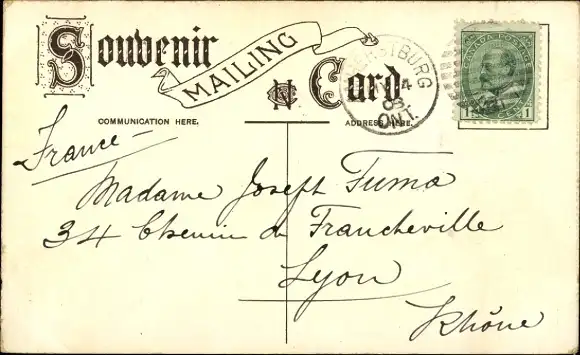 Souvenir MAILING Card
COMMUNICATION HERE.
ADDRESS HERE.
ONT.
CANADA POSTAGE
1 1
France
Madame Joseph Fuma
34 Chemin de Francheville
Lyon
Rhône